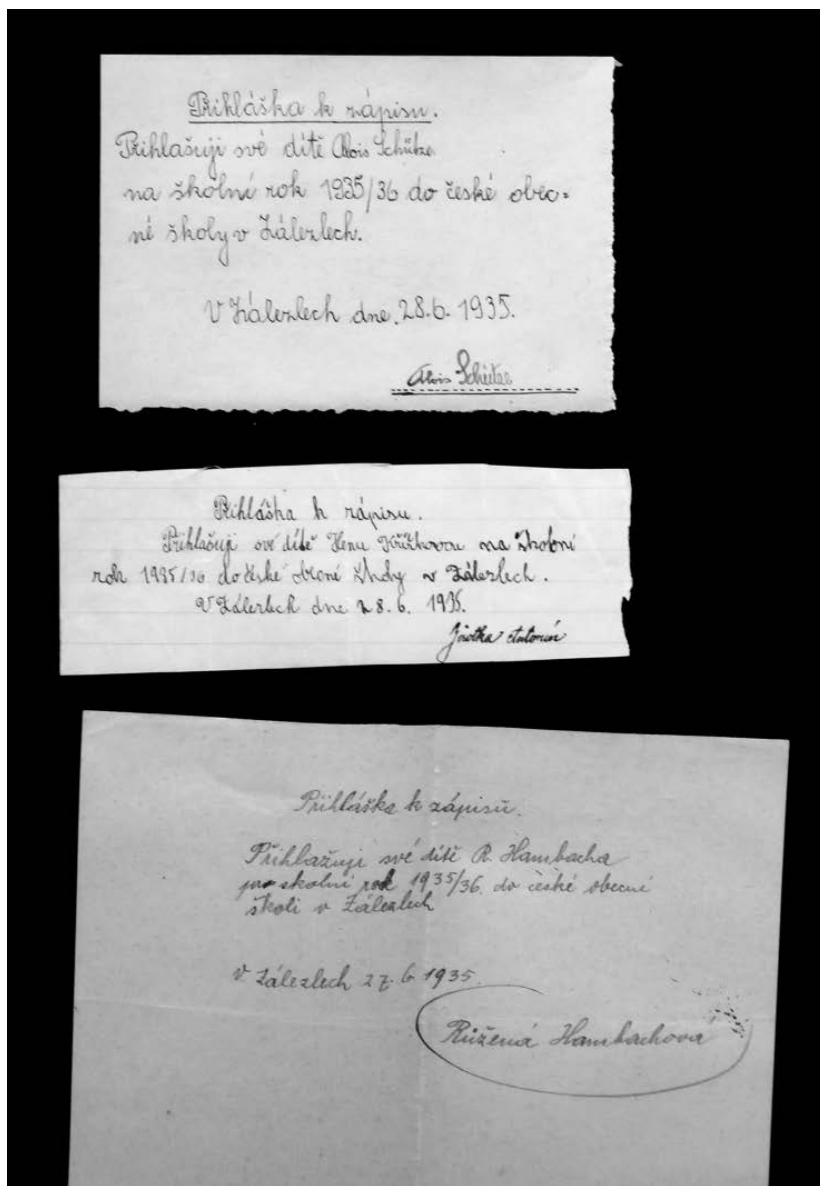 Přihláška k zápisu.
Přihlašuji své dítě Alois Schütze
na školní rok 1935/36 do české obec=
né školy v Zálezlech.
V Zálezlech dne 28.6. 1935.
Alois Schütze
Přihláška k zápisu.
Přihlašuji své dítě Křížkovou na školní
rok 1935/36 do české obecní školy v Zálezlech.
V Zálezlech dne 28. 6. 1935.
Antonín
Přihláška k zápisu.
Přihlažuji své dítě R. Hambacha
pro skolní rok 1935/36. do české obecné
školi v Zálezlech
v Zálezlech 27. 6 1935.
Růžená Hambachová